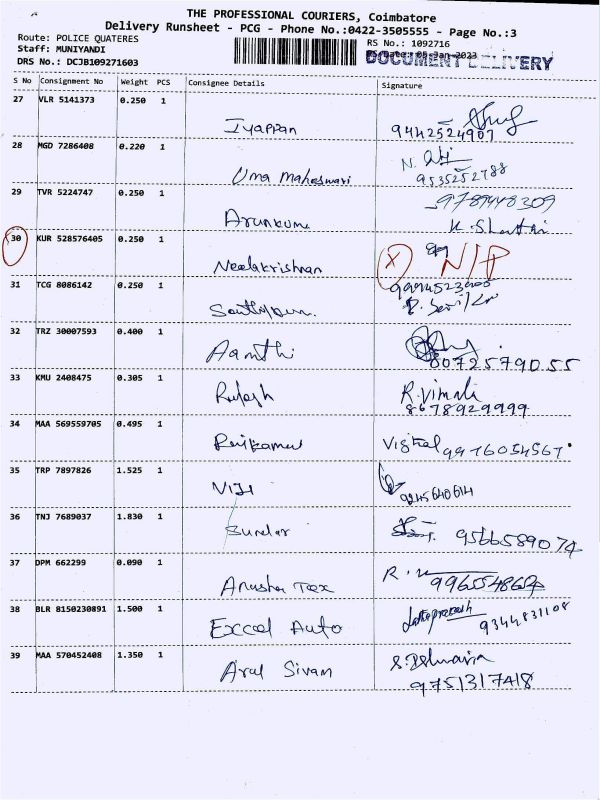 THE PROFESSIONAL COURIERS, Coimbatore
Delivery Runsheet - PCG - Phone No.:0422-3505555 - Page No.:3
Route: POLICE QUATERES
Staff: MUNIYANDI
DRS No.: DCJB109271603
RS No.: 1092716
05-Jan-2023
DOCUMENT DELIVERY
S No Consignment No Weight PCS Consignee Details Signature
27 VLR 5141373 0.250 1 Iyappan 9442524907
28 MGD 7286408 0.220 1 Uma Maheswari 9535252788
29 TVR 5224747 0.250 1 Arunkumar 9789448309
K. Shanthi
30 KUR 528576405 0.250 1 Neelakrishnan X N/P
31 TCG 8086142 0.250 1
32 TRZ 30007593 0.400 1 Aarthi 8072579055
33 KMU 2408475 0.305 1 Rajesh R.Vimala
8678929999
34 MAA 569559705 0.495 1 Rajkamal Vishal 9976054567
35 TRP 7897826 1.525 1 Viji 9245640614
36 TNJ 7689037 1.830 1 Sundar 9566589074
37 DPM 662299 0.090 1 Anusha Tex
38 BLR 8150230891 1.500 1 Exccel Auto 9344831108
39 MAA 570452408 1.350 1 Arul Sivam
9751317418